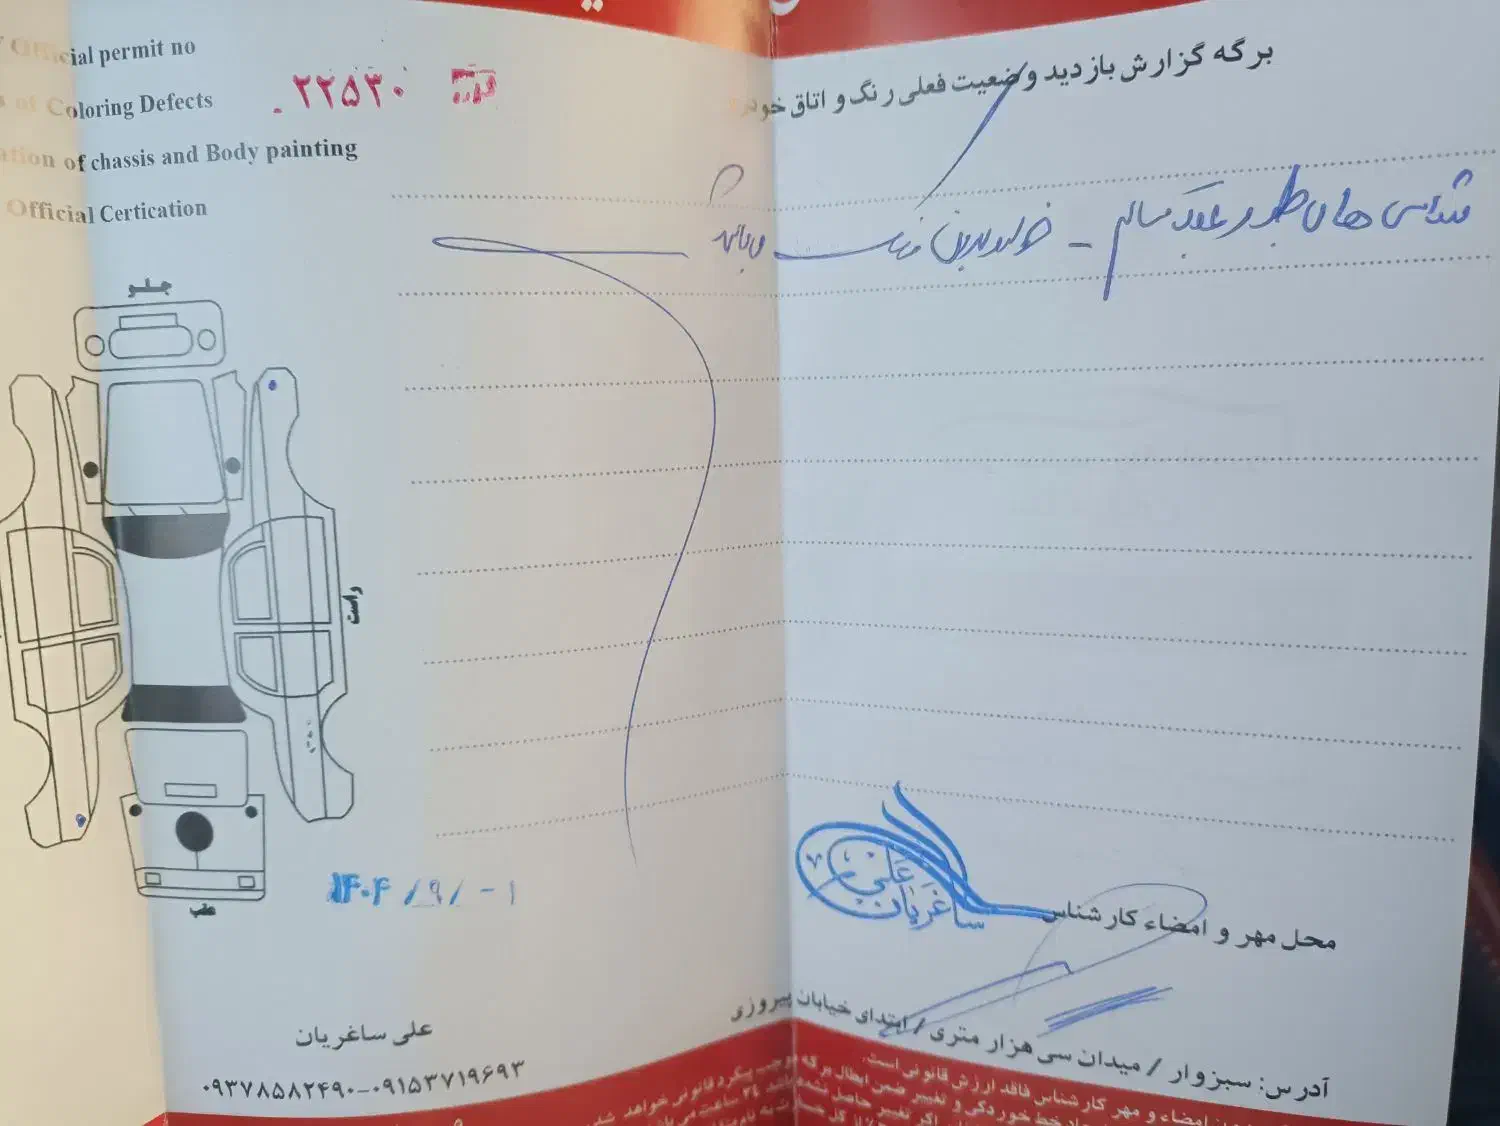 برگه گزارش بازدید وضعیت فعلی رنگ و اتاق خودرو
Official permit no
of Coloring Defects
۲۲۵۳۰
ation of chassis and Body painting
Official Certication
شاسی های جلو و عقب سالم - خودرو بدون رنگ می باشد
جلو
راست
عقب
۱۴۰۴/۹/-۱
علی ساغریان
محل مهر و امضاء کارشناس
علی ساغریان
۰۹۳۷۸۵۸۲۴۹۰-۰۹۱۵۳۷۱۹۶۹۳
آدرس: سبزوار / میدان سی هزار متری / ابتدای خیابان پیروزی
امضاء و مهر کارشناس فاقد ارزش قانونی است.
خط خوردگی و تغییر ضمن ابطال برگه موجب پیگرد قانونی خواهد شد.